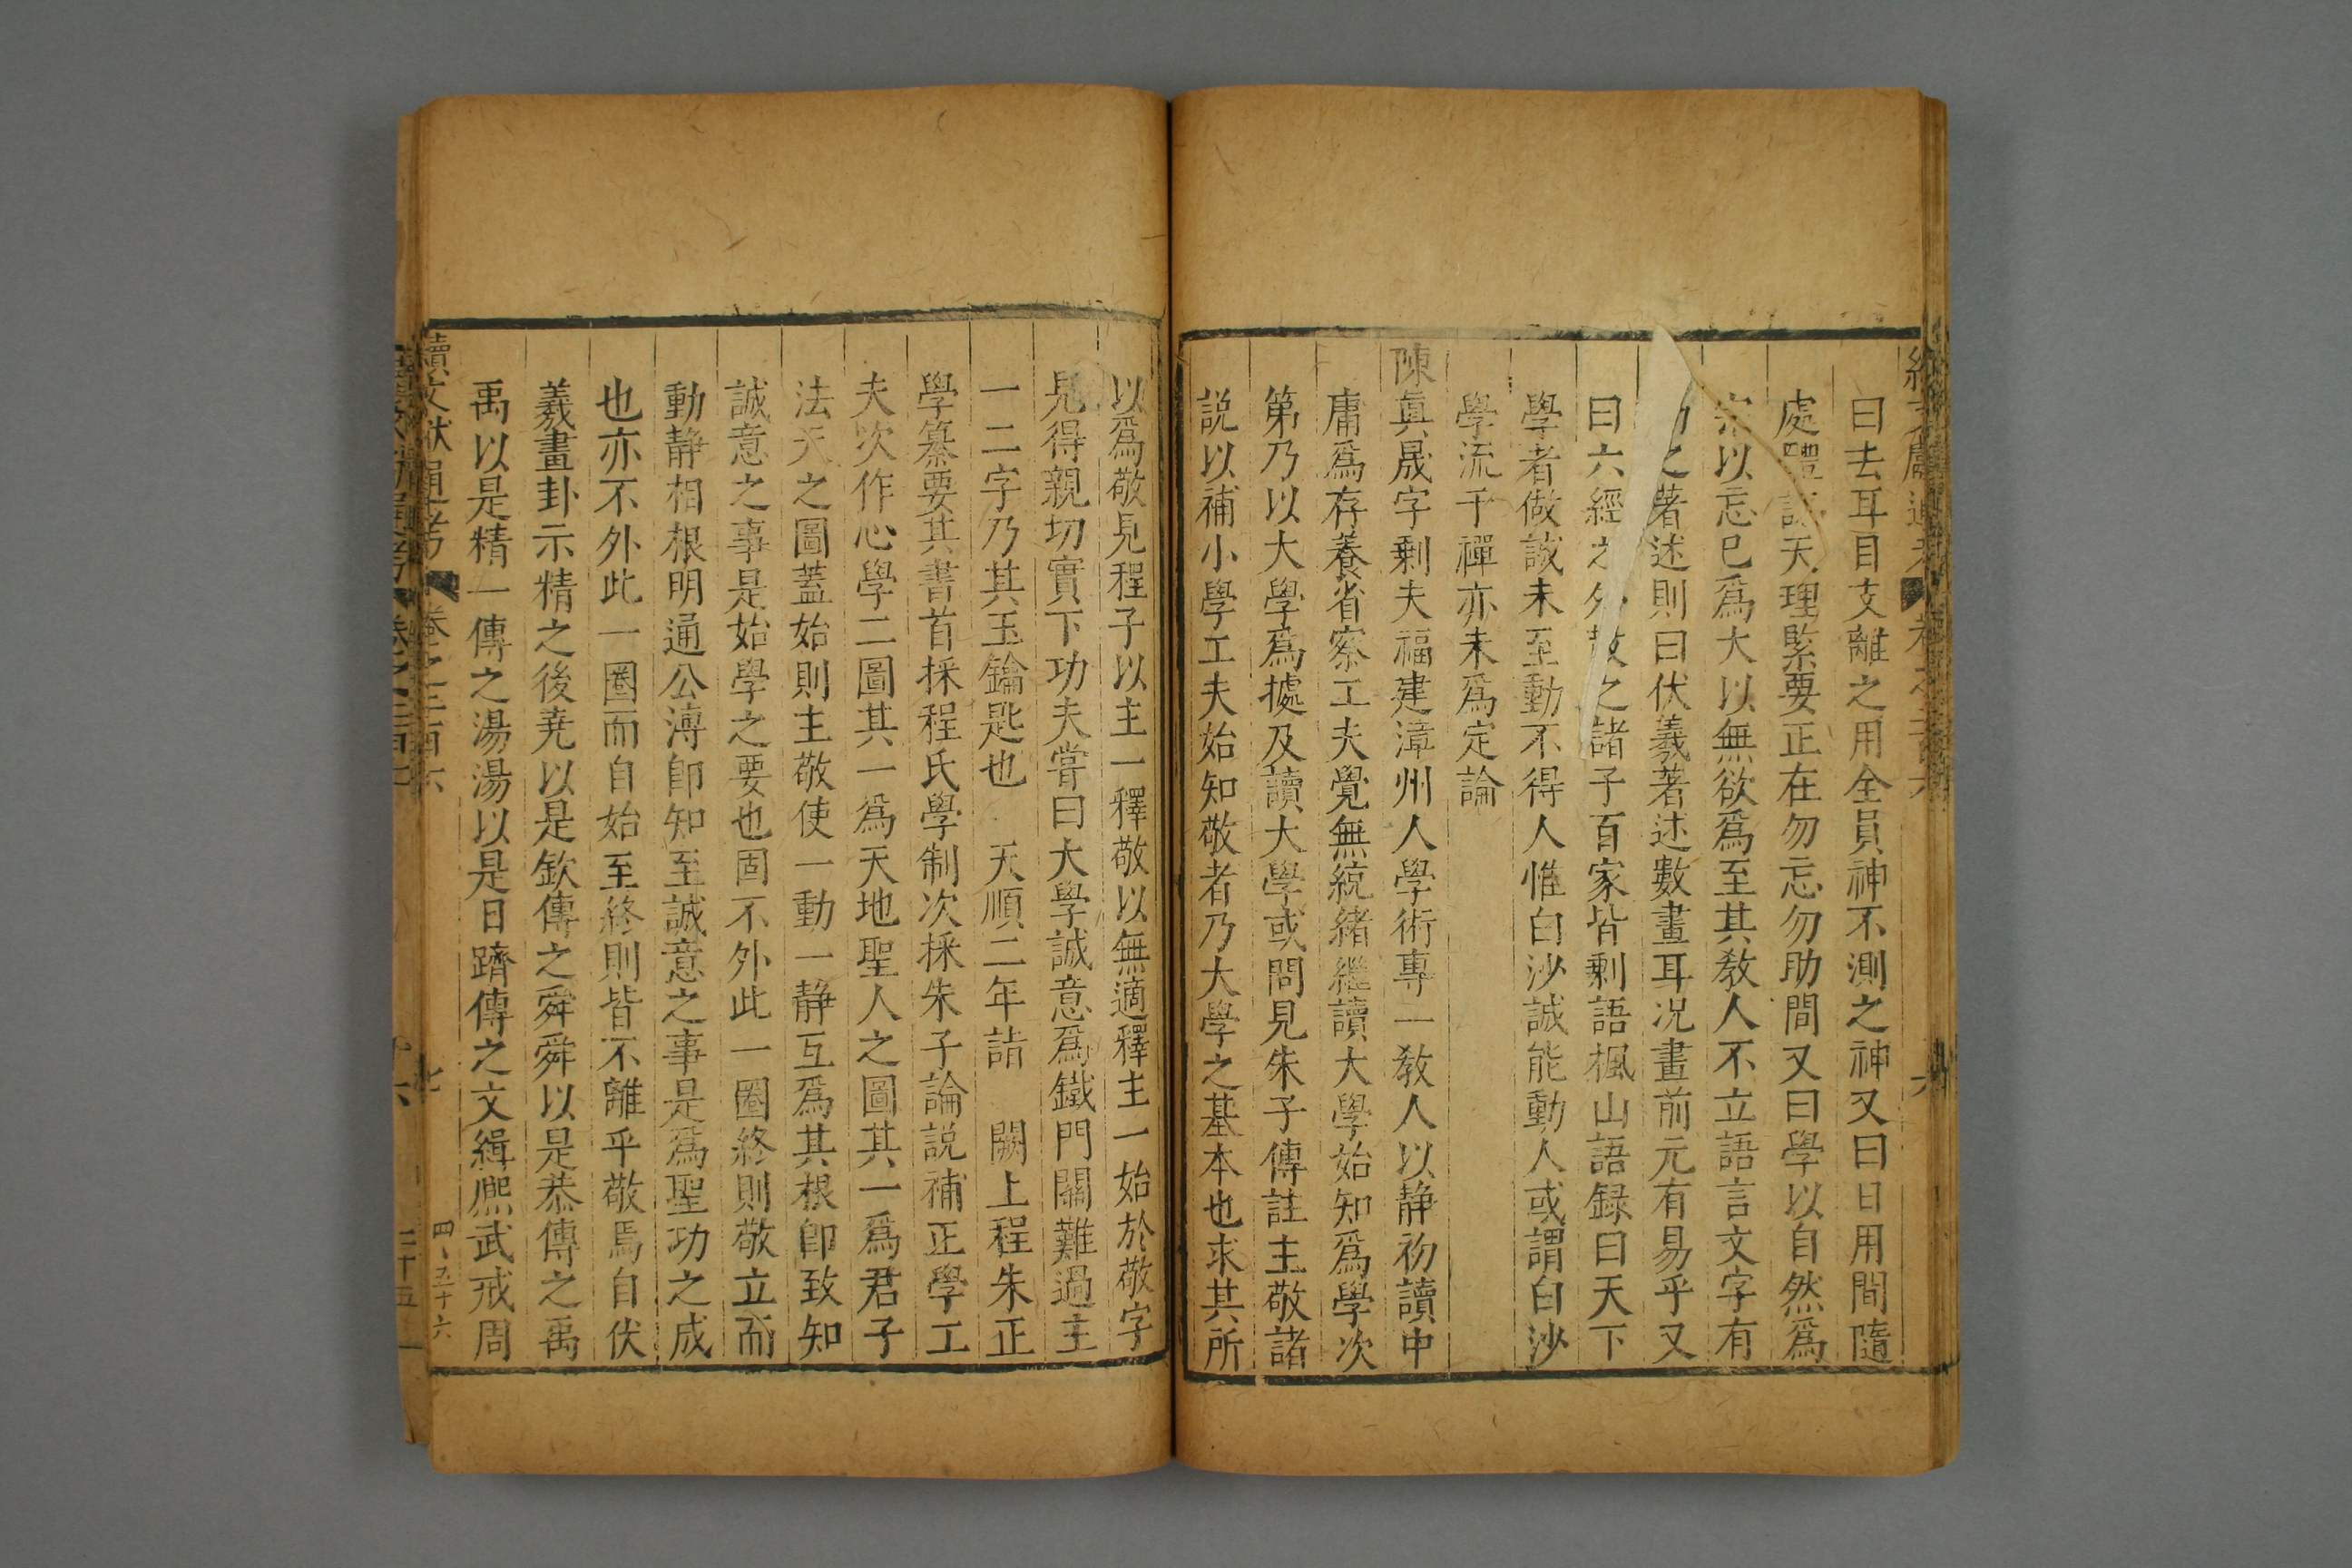 曰去耳目支離之用全員神不測之神又曰日用間隨
處體認天理緊要正在勿忘勿助間又曰學以自然爲
宗以忘已爲大以無欲爲至其教人不立語言文字有
之著述則曰伏羲著述數畫耳况畫前元有易乎又
曰六經之外散之諸子百家皆剩語楓山語録曰天下
學者做誠未至動不得人惟白沙誠能動人或謂白沙
學流于禪亦未爲定論
陳眞晟字剩夫福建漳州人學術專一教人以静初讀中
庸爲存養省察工夫覺無統緒繼讀大學始知爲學次
第乃以大學爲據及讀大學或問見朱子傳註主敬諸
説以補小學工夫始知敬者乃大學之基本也求其所
以爲敬見程子以主一釋敬以無適釋主一始於敬字
見得親切實下功夫嘗曰大學誠意爲鐵門關難過主
一二字乃其玉鑰匙也 天順二年詣 闕上程朱正
學纂要其書首採程氏學制次採朱子論説補正學工
夫次作心學二圖其一爲天地聖人之圖其一爲君子
法天之圖蓋始則主敬使一動一静互爲其根卽致知
誠意之事是始學之要也固不外此一圈終則敬立而
動静相根明通公溥卽知至誠意之事是爲聖功之成
也亦不外此一圈而自始至終則皆不離乎敬焉自伏
羲畫卦示精之後堯以是欽傳之舜舜以是恭傳之禹
禹以是精一傳之湯湯以是日躋傳之文緝熙武戒周
續文獻通考 卷之二百六 七 四、五十六